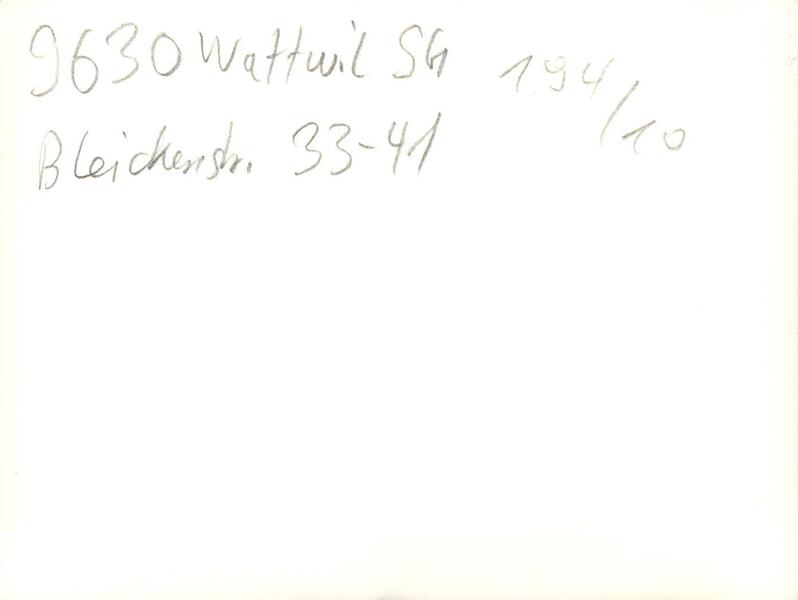 9630 Wattwil SG 194/10
Bleickenstr. 33-41